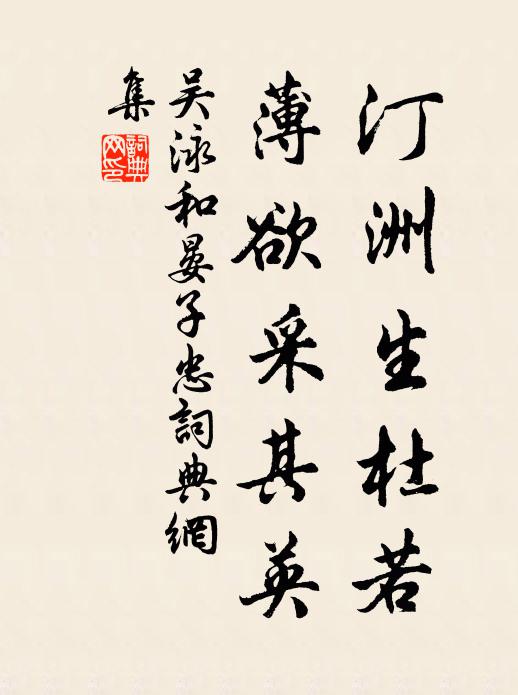 汀洲生杜若
薄欲采其英
吴泳和晏子忠詞典網
集
詞典網印